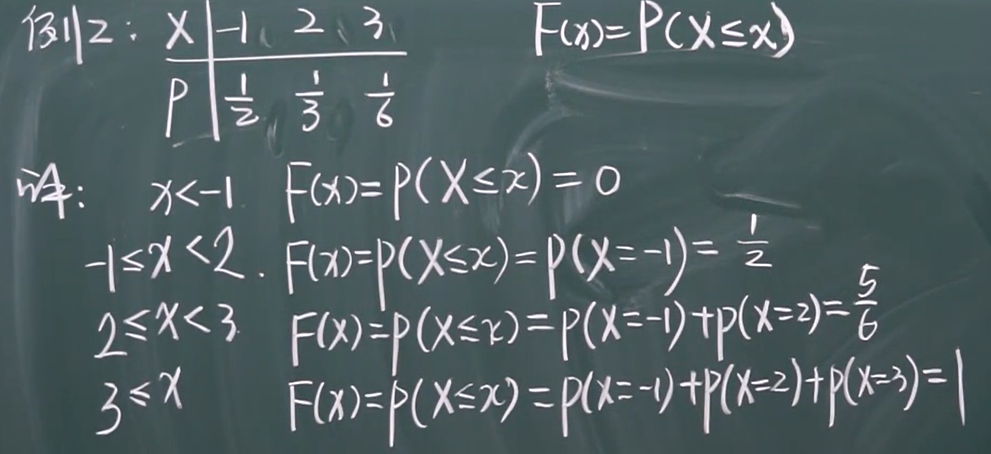 例2: X -1 2 3 F(x)=P(X≤x)
P 1/2 1/3 1/6
解: x<-1 F(x)=P(X≤x)=0
-1≤x<2. F(x)=P(X≤x)=P(X=-1)=1/2
2≤x<3 F(x)=P(X≤x)=P(X=-1)+P(X=2)=5/6
3≤x F(x)=P(X≤x)=P(X=-1)+P(X=2)+P(X=3)=1